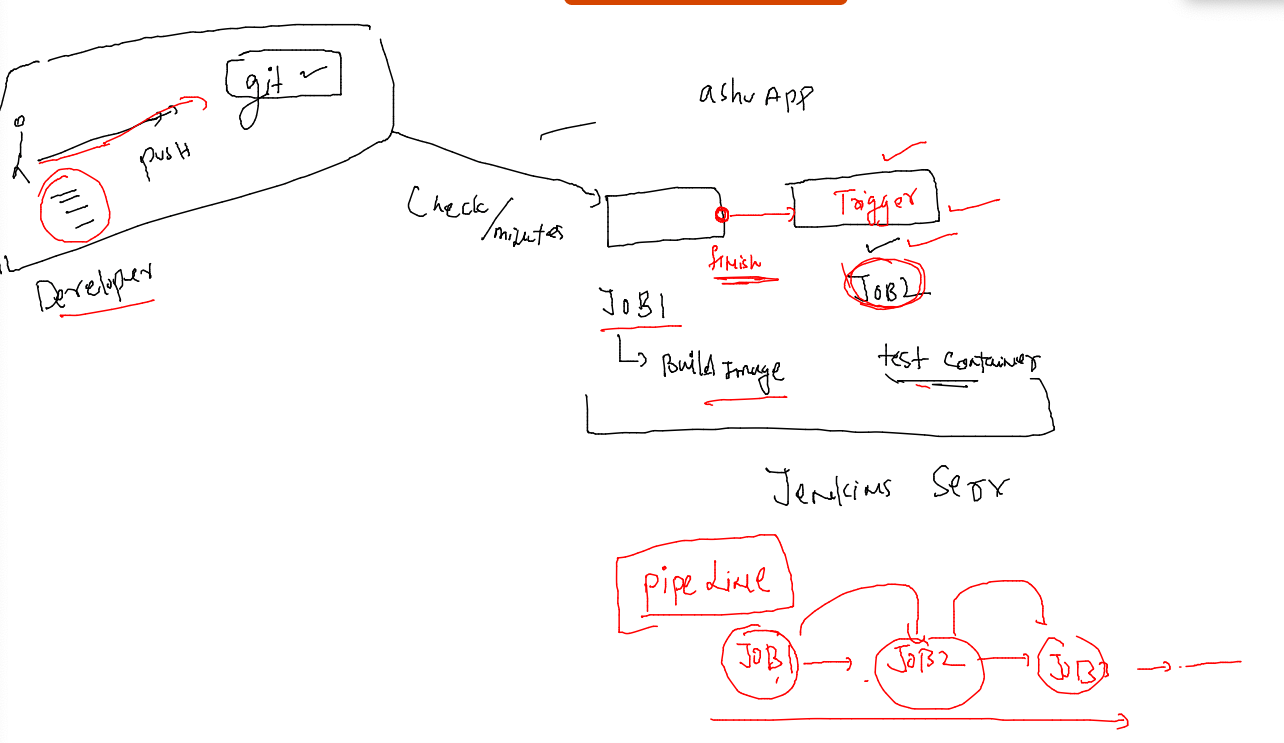 git
PUSH
Developer
ashu APP
Check
/minutes
Trigger
finish
JOB1
JOB2
Build Image
test container
Jenkins
pipeLine
JOB1
JOB2
JOB3